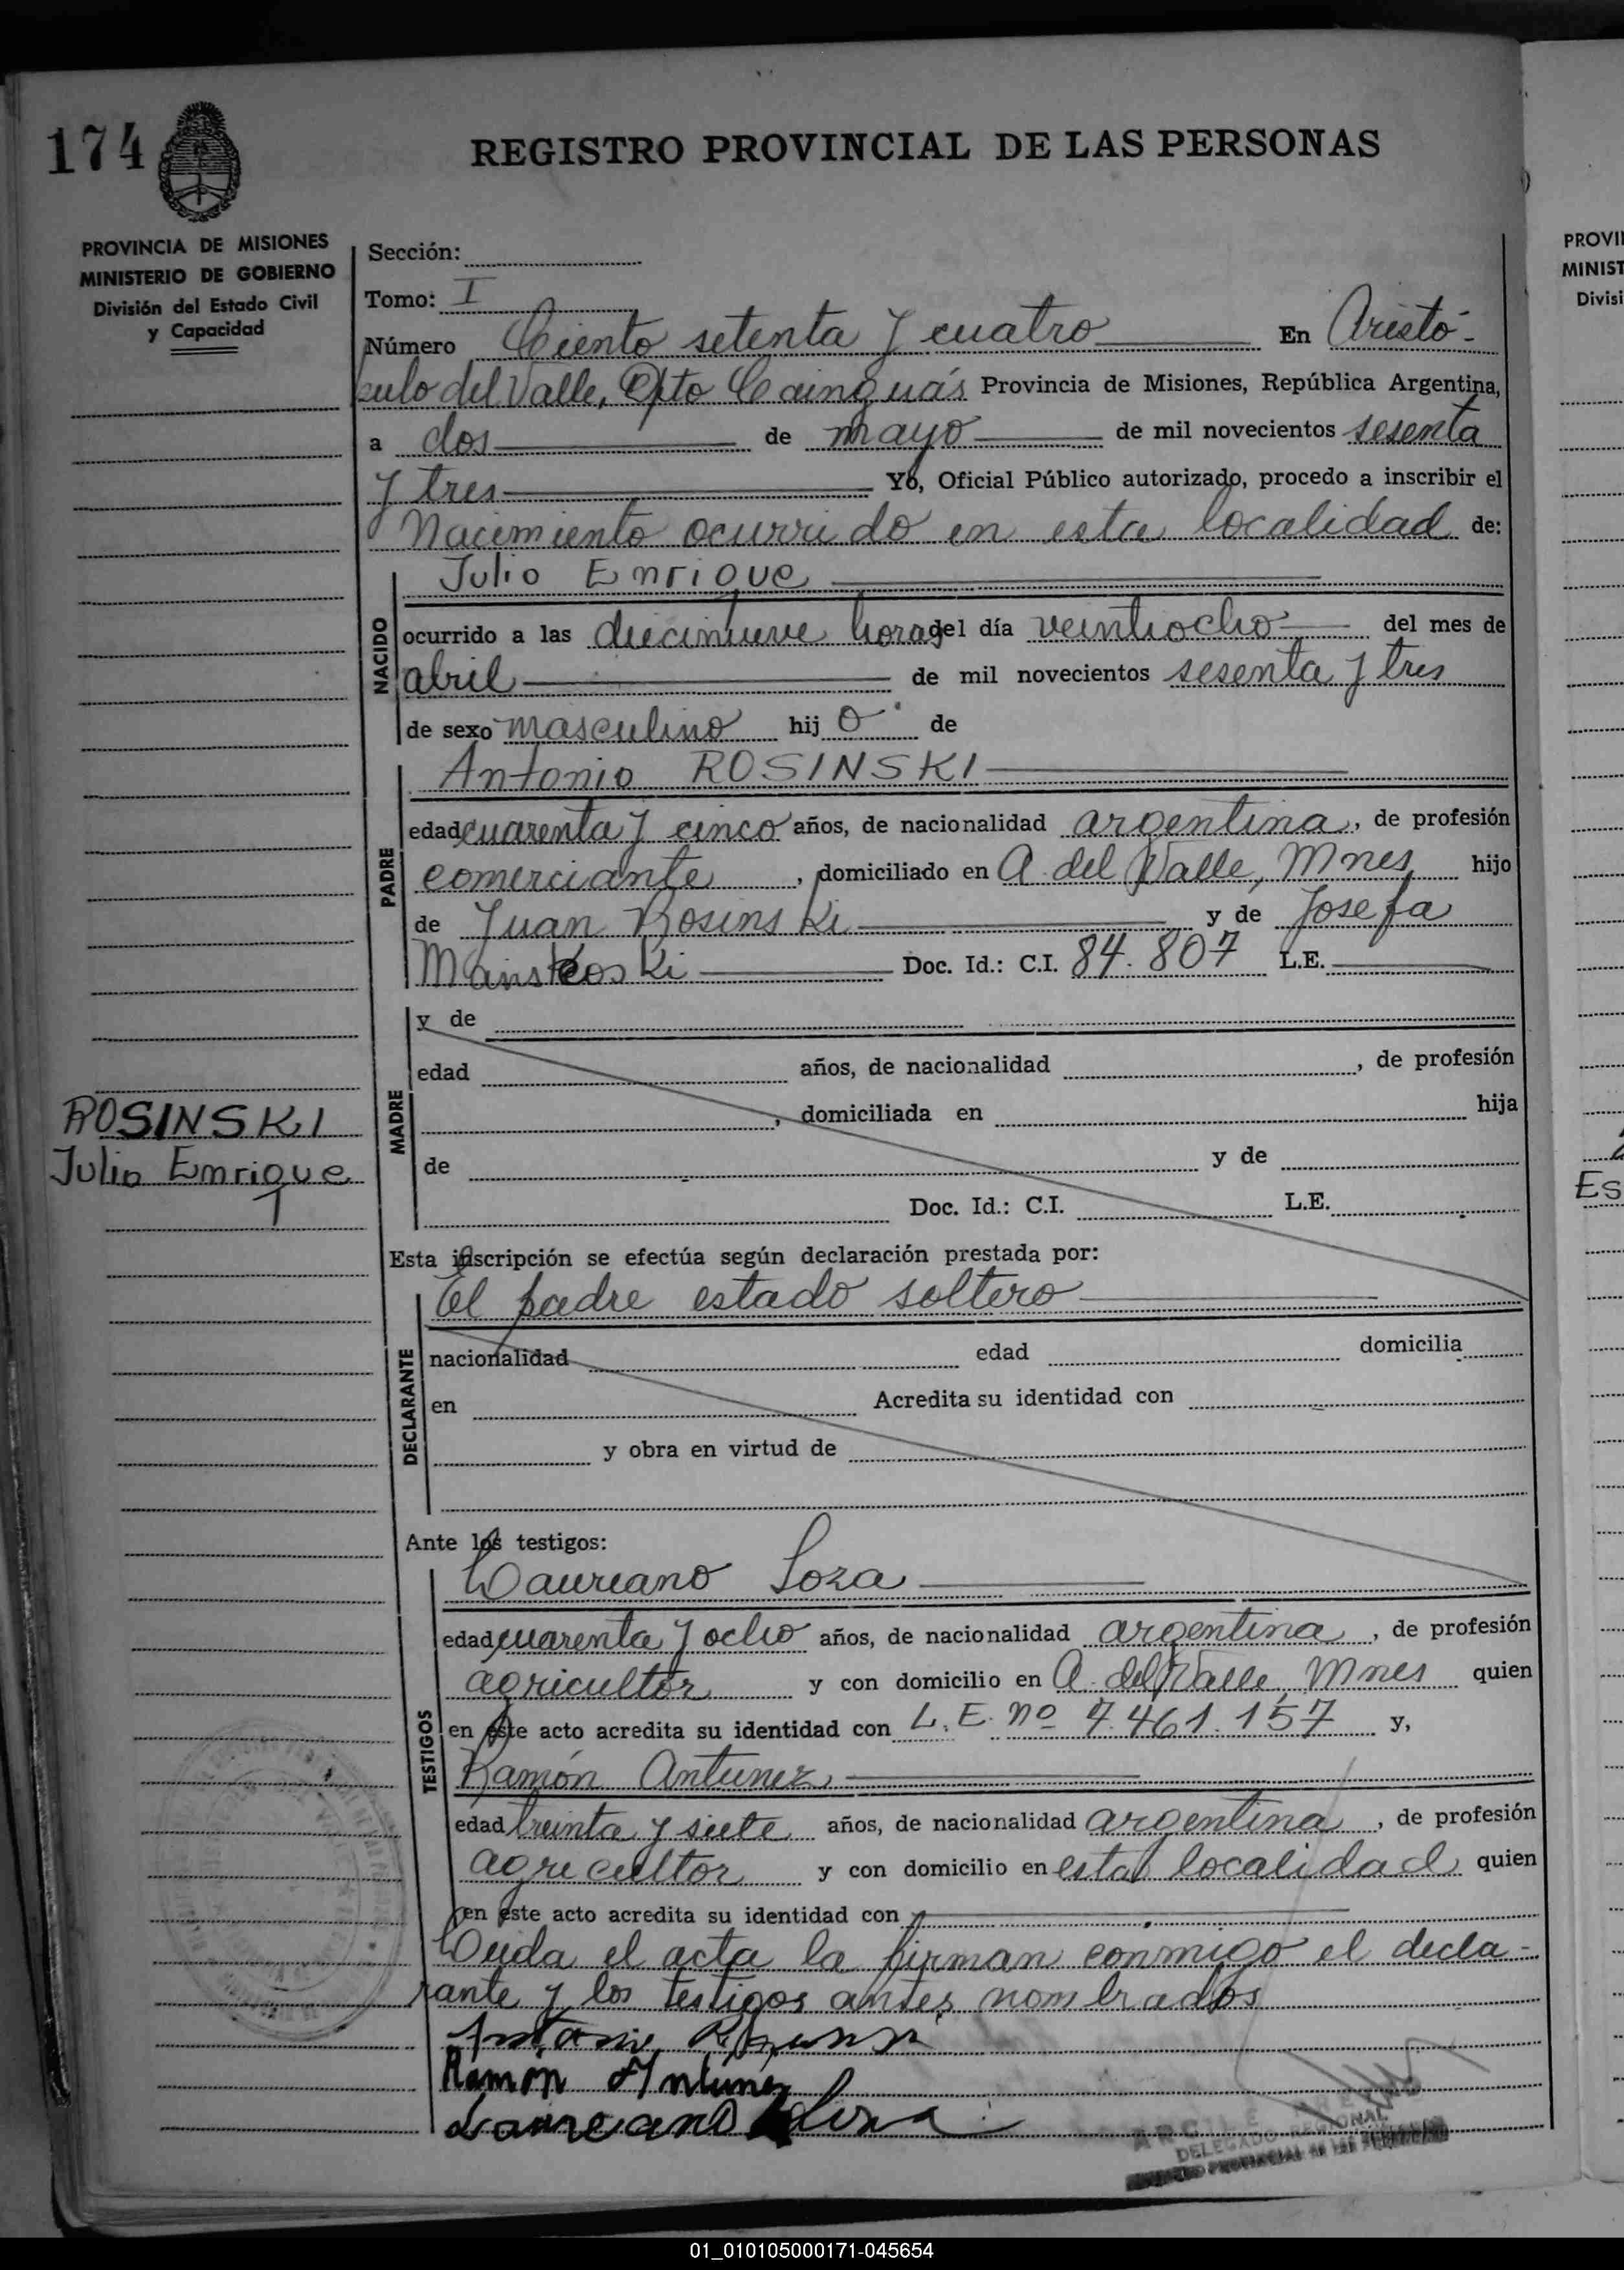 174
REGISTRO PROVINCIAL DE LAS PERSONAS
PROVINCIA DE MISIONES
MINISTERIO DE GOBIERNO
División del Estado Civil
y Capacidad
Sección:
Tomo: I
Número Ciento setenta y cuatro En Aristó-
bulo del Valle, Dpto Cainguás Provincia de Misiones, República Argentina,
a dos de mayo de mil novecientos sesenta
y tres Yo, Oficial Público autorizado, procedo a inscribir el
Nacimiento ocurrido en esta localidad de:
NACIDO
Julio Enrique
ocurrido a las diecinueve horas del día veintiocho del mes de
abril de mil novecientos sesenta y tres
de sexo masculino hij o de
PADRE
Antonio ROSINSKI
edad cuarenta y cinco años, de nacionalidad argentina, de profesión
comerciante, domiciliado en A. del Valle, Mnes hijo
de Juan Rosinski y de Josefa
Doc. Id.: C.I. 84.807 L.E.
MADRE
y de
edad años, de nacionalidad , de profesión
, domiciliada en hija
de y de
Doc. Id.: C.I. L.E.
ROSINSKI
Julio Enrique
Esta inscripción se efectúa según declaración prestada por:
DECLARANTE
El padre estado soltero
nacionalidad edad domicilia
en Acredita su identidad con
y obra en virtud de
Ante los testigos:
TESTIGOS
Laureano Soza
edad cuarenta y ocho años, de nacionalidad argentina, de profesión
agricultor y con domicilio en A. del Valle, Mnes quien
en este acto acredita su identidad con L.E. nº 7.461.157 y,
Ramón Antunez
edad treinta y siete años, de nacionalidad argentina, de profesión
agricultor y con domicilio en esta localidad quien
en este acto acredita su identidad con
Leida el acta la firman conmigo el decla-
rante y los testigos antes nombrados
Ramon Antunez
Laureano Soza
DELEGADO REGIONAL
REGISTRO PROVINCIAL DE LAS PERSONAS
PROVI
MINIST
Divisi
Es
01_010105000171-045654